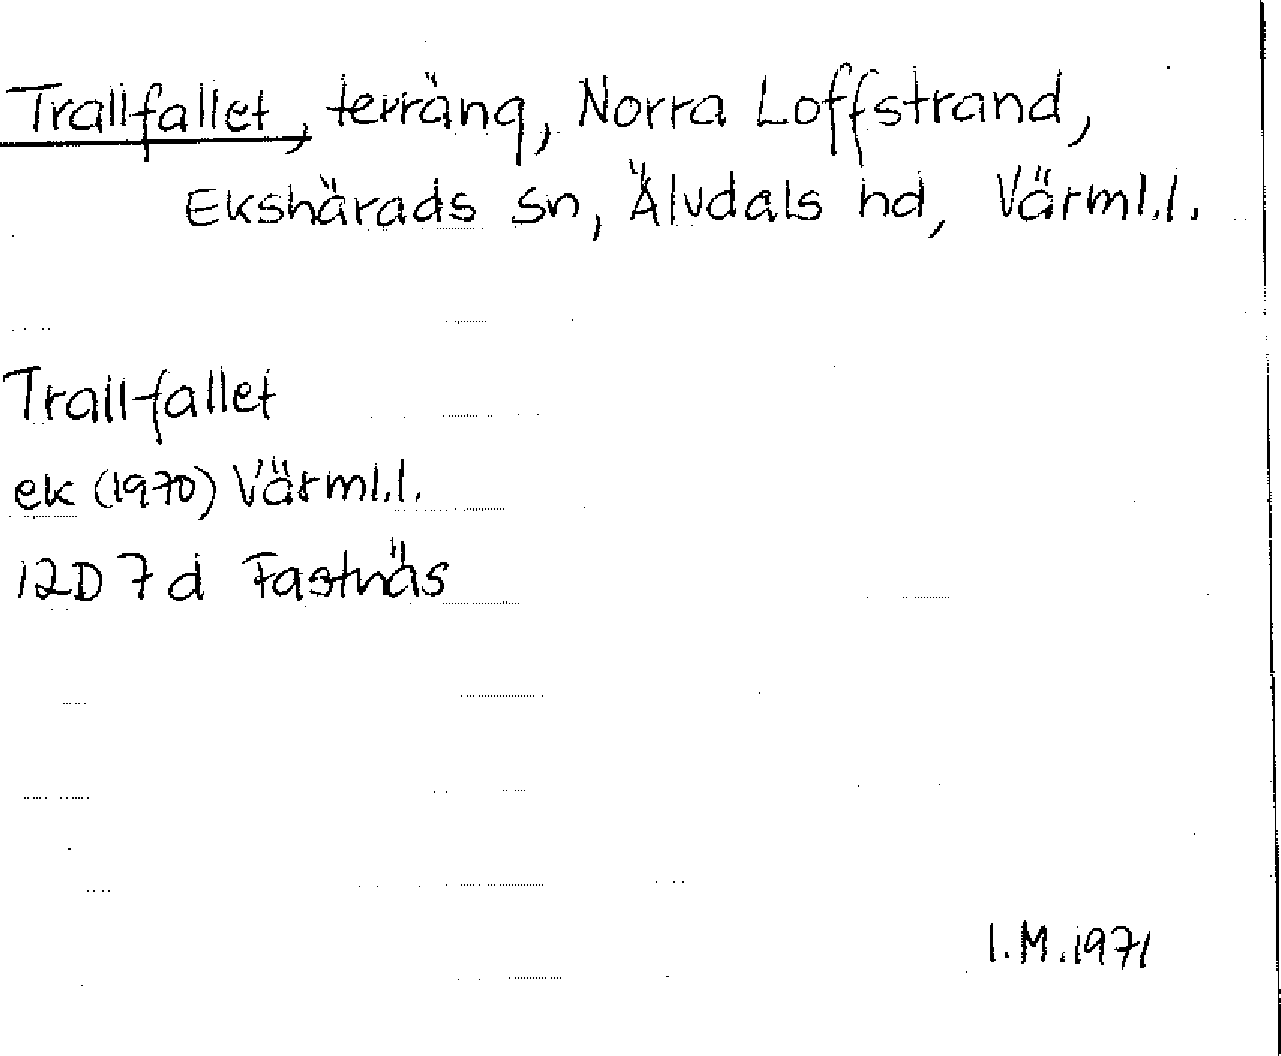 Trallfallet, terräng, Norra Loffstrand,
Ekshärads sn, Älvdals hd, Värml.l.
Trallfallet
ek (1970) Värml.l.
12D 7d Fastnäs
I.M.1971